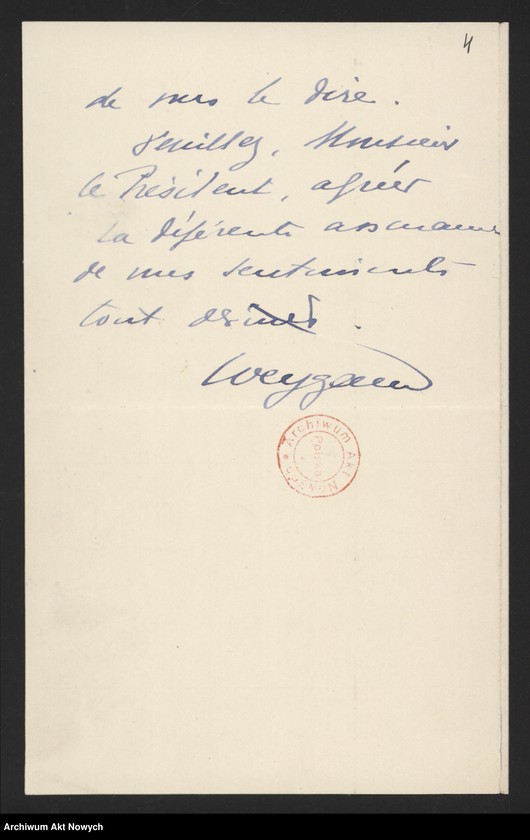 4
de vous le dire.
Veuillez, Monsieur
le Président, agréer
la déférente assurance
de mes sentiments
tout
Weygand
Archiwum Akt Nowych
Archiwum Akt Nowych